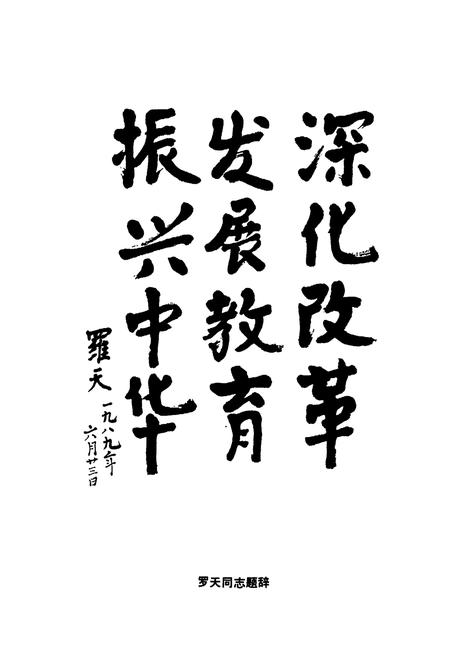 深化改革
发展教育
振兴中华
羅天
一九八九年
六月廿三日
罗天同志题辞